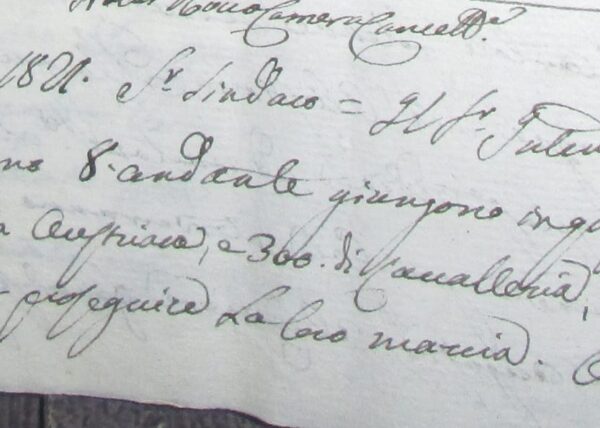 Novo Camera Cancell.a
1821. Sr. Sindaco = Il Sr. Inten
no 8. andante giungono in qu
a Austriaca, e 300. di Cavalleria,
proseguire La loro marcia.